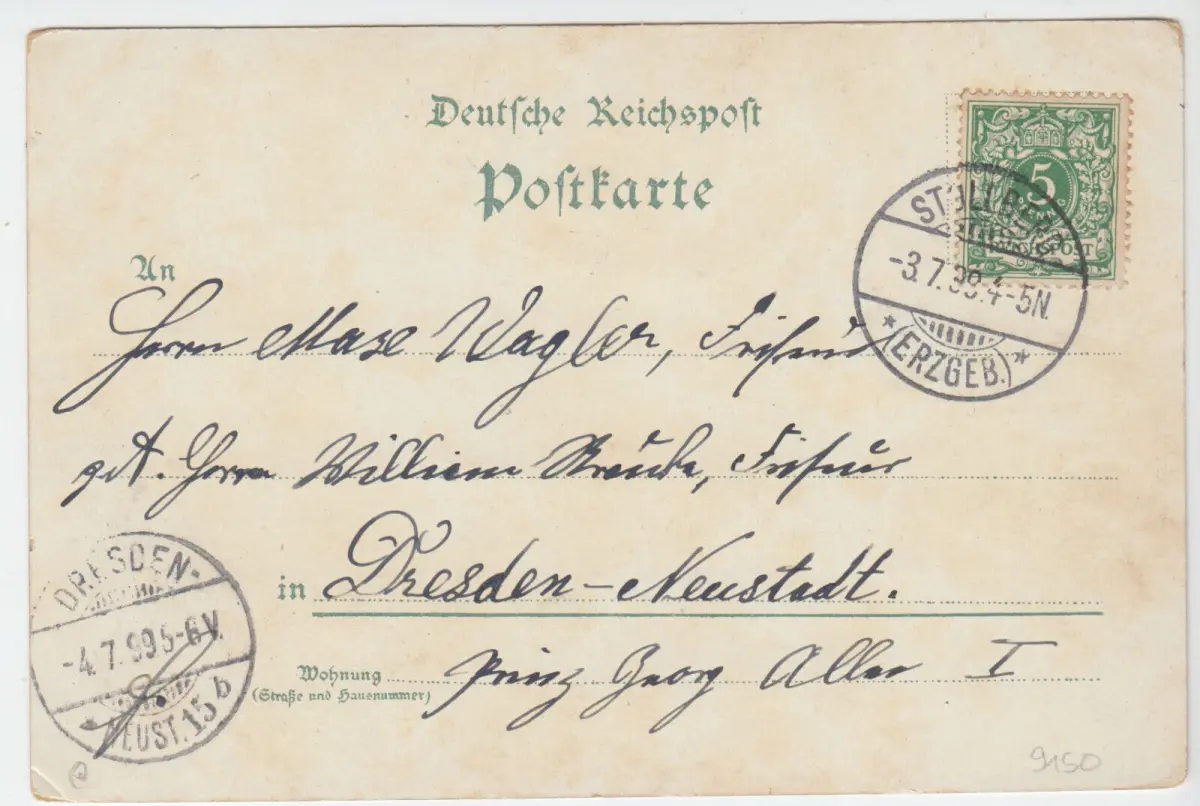 Deutsche Reichspost
Postkarte
5
REICHSPOST
STOLLBERG
-3.7.99.4-5N.
* (ERZGEB.) *
An
Herrn Max Wagler, Friseur
Herrn William Friseur
in Dresden-Neustadt.
Wohnung Prinz Georg Allee I
(Straße und Hausnummer)
DRESDEN-
-4.7.99 5-6V.
* NEUST. 15 b
9150